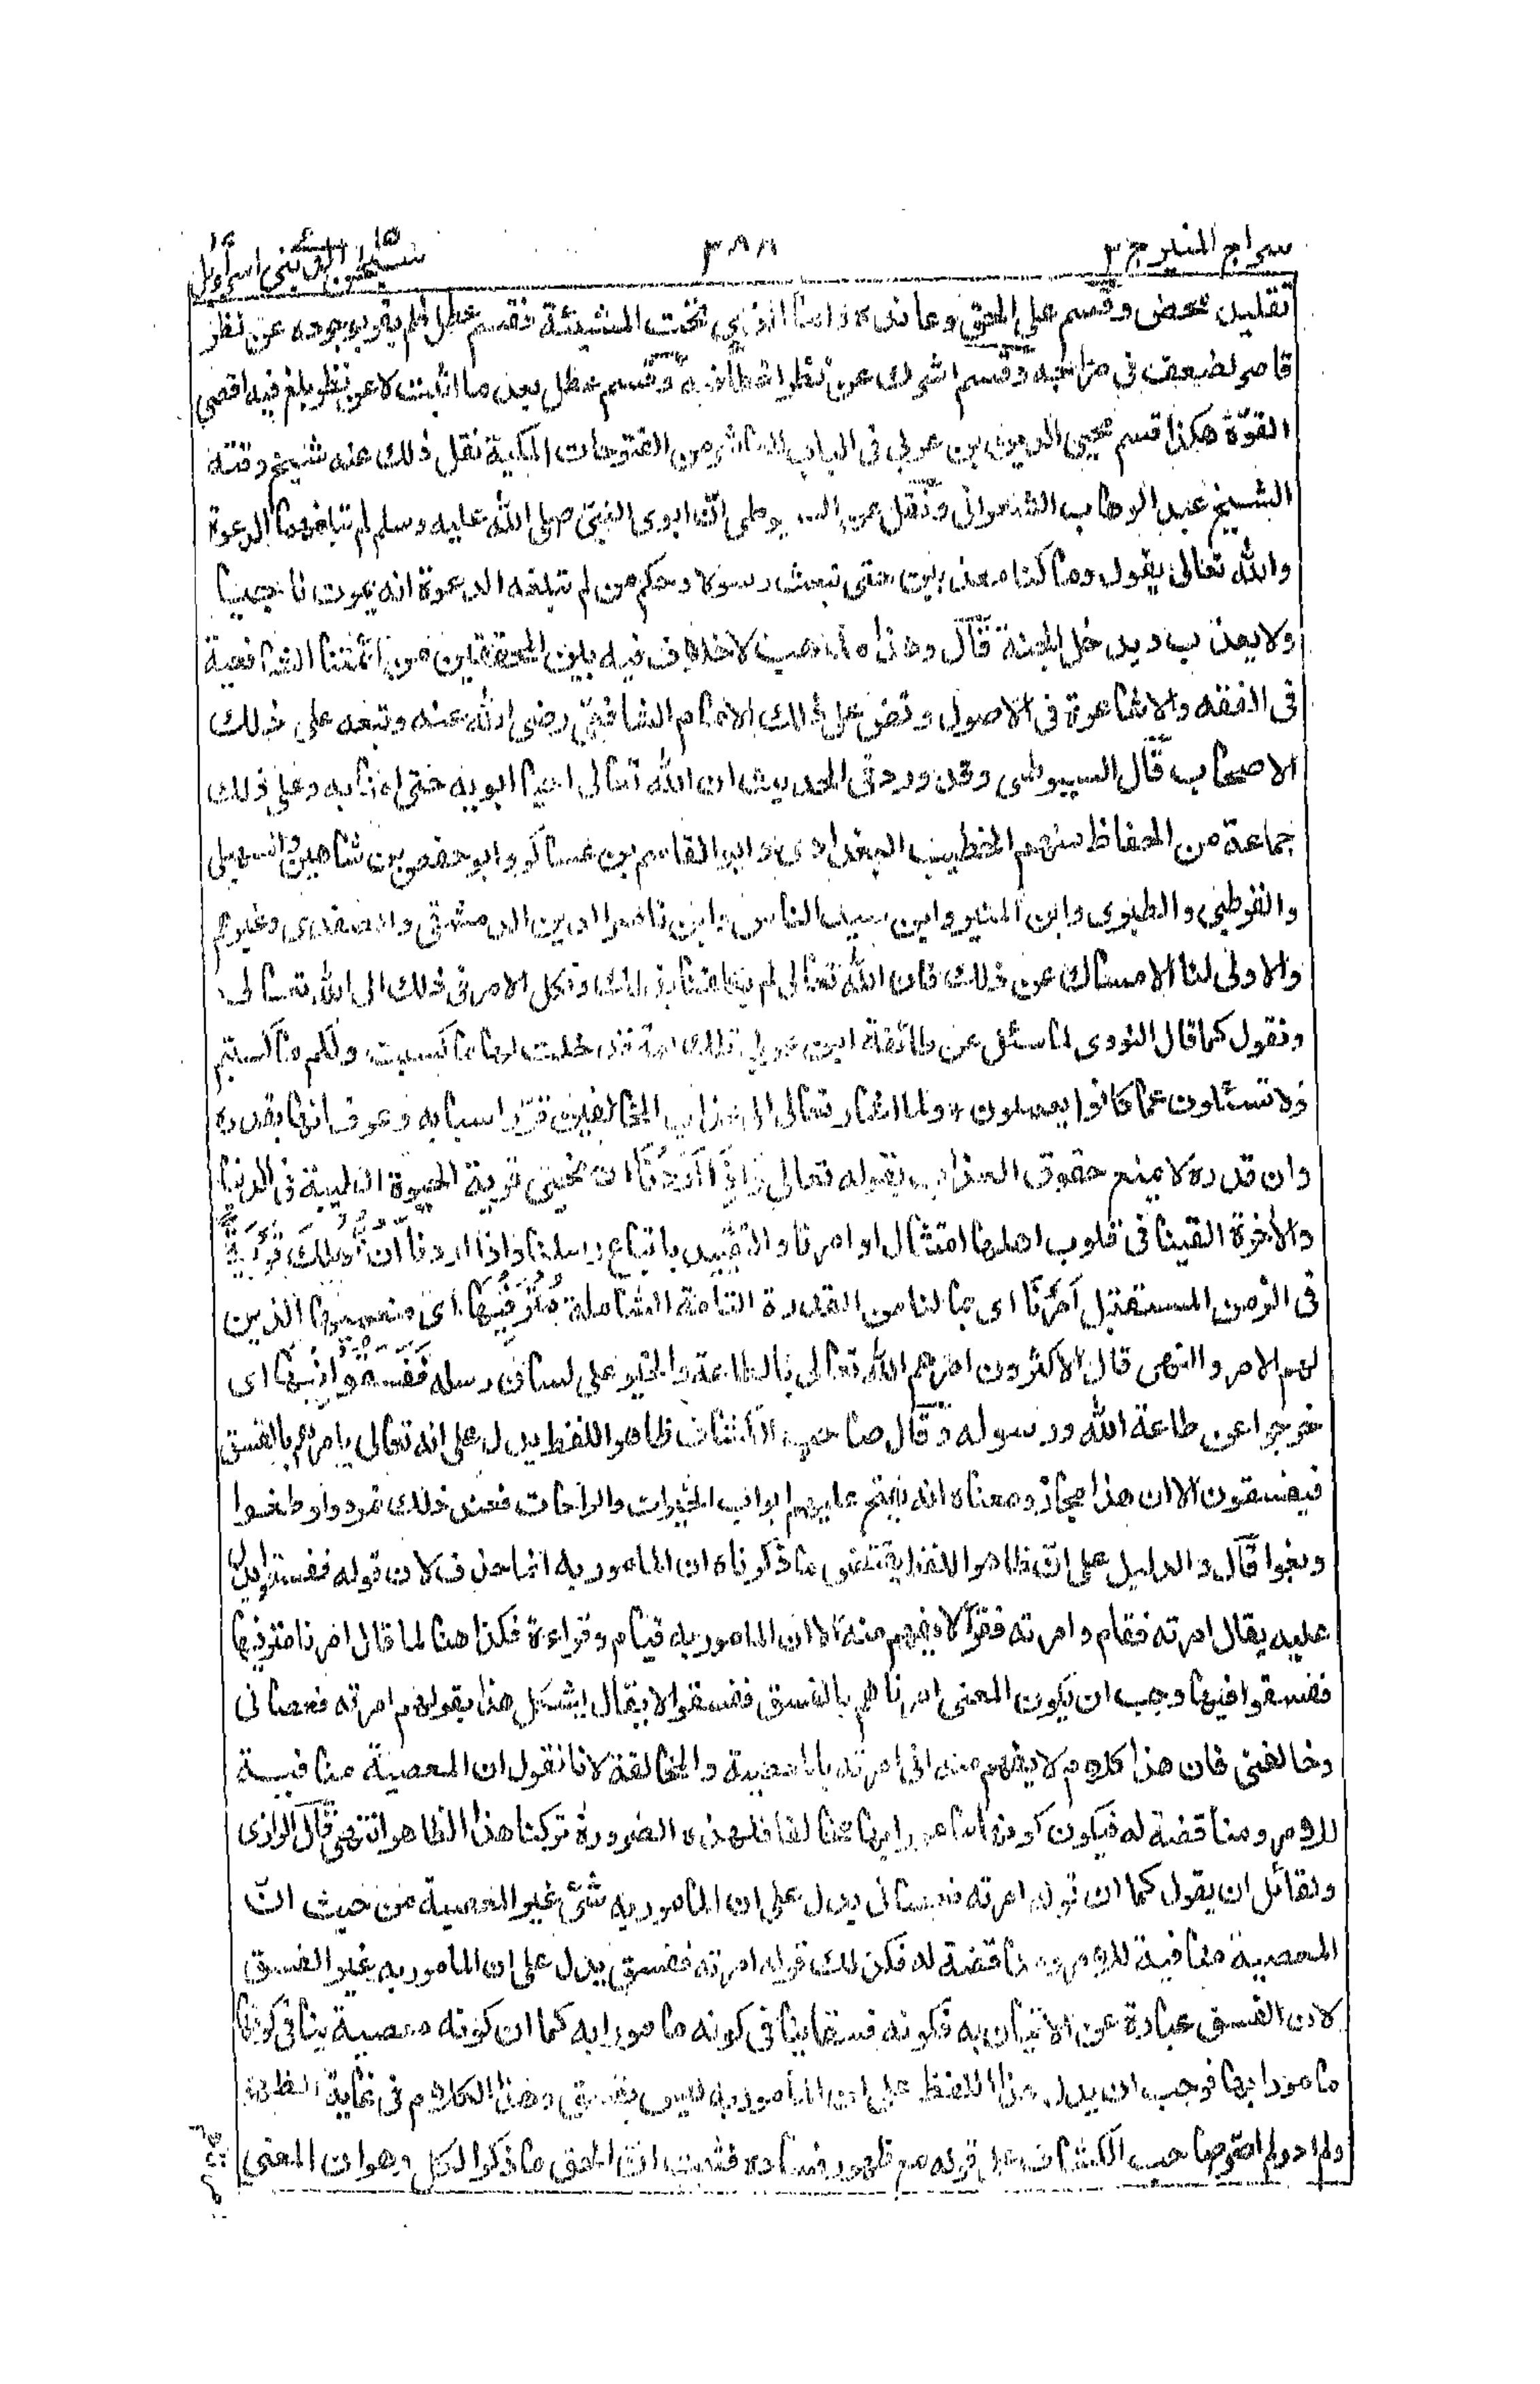 سراج المنير ج ٢
٣٨٨
سبحن الذى ١٥ بنى اسرآءيل ١٧
تقليد محض وقسم علم الحق وعاند واما الذى تحت المشيئة فقسم عطل فلم يقر بوجوده عن نظر
قاصر لضعف فى مزاجه وقسم اشرك عن نظر اخطأ فيه وقسم عطل بعد ما اثبت لا عن نظر بلغ فيه اقصى
القوّة هكذا قسم محيى الدين بن عربى فى الباب العاشر من الفتوحات المكية نقل ذلك عنه شيخ وقته
الشيخ عبد الوهاب الشعرانى ونقل عن السيوطى انّ ابوى النبىّ صلى الله عليه وسلم لم تبلغهما الدعوة
والله تعالى يقول وما كنا معذبين حتى نبعث رسولا وحكم من لم تبلغه الدعوة انه يموت ناجيا
ولا يعذب ويدخل الجنة قال وهذا مذهب لا خلاف فيه بين المحققين من ائمتنا الشافعية
فى الفقه والاشاعرة فى الاصول ونص على ذلك الامام الشافعىّ رضى الله عنه وتبعه على ذلك
الاصحاب قال السيوطى وقد ورد فى الحديث ان الله تعالى احيا ابويه حتى امنا به وعلى ذلك
جماعة من الحفاظ منهم الخطيب البغدادى وابو القاسم بن عساكر وابو حفص بن شاهين والسهيلى
والقرطبى والطبرى وابن المنير وابن سيد الناس وابن ناصر الدين الدمشقى والصفدى وغيرهم
والاولى لنا الامساك عن ذلك فان الله تعالى لم يكلفنا بذلك ونكل الامر فى ذلك الى الله تعالى
ونقول كما قال النووى لما سئل عن طائفة ابن عربى تلك امة قد خلت لها ما كسبت ولكم ما كسبتم
ولا تسئلون عما كانوا يعملون ولما اشار تعالى الى عذاب المخالفين قرّر اسبابه وعرف انها بقدره
وان قدره لا يمنع حقوق العذاب بقوله تعالى وَاِذَا اَرَدْنَا ان نحيى قرية الحيوة الطيبة فى الدنيا
والاخرة القينا فى قلوب اهلها امتثال اوامرنا والتقييد باتباع رسلنا واذا اردنا ان نُّهْلِكَ قَرْيَةً
فى الزمن المستقبل اَمَرْنَا اى بما لنا من القدرة التامة الشاملة مُتْرَفِيْهَا اى منعميها الذين
لهم الامر والنهى قال الاكثرون امرهم الله تعالى بالطاعة والخير على لسان رسله فَفَسَقُوْا فِيْهَا اى
خرجوا عن طاعة الله ورسوله وقال صاحب الكشاف ظاهر اللفظ يدل على انه تعالى يامرهم بالفسق
فيفسقون الا ان هذا مجاز ومعناه انه يفتح عليهم ابواب الخيرات والراحات فعند ذلك تمردوا وطغوا
وبغوا قال والدليل على انّ ظاهر اللفظ يقتضى ما ذكرناه ان المامور به انما حذف لان قوله ففسقوا يدل
عليه يقال امرته فقام وامرته فقرأ لا يفهم منه الا ان المامور به قيام وقراءة فكذا هنا لما قال امرنا مترفيها
ففسقوا فيها وجب ان يكون المعنى امرناهم بالفسق ففسقوا لا يقال يشكل هذا بقولهم امرته فعصانى
وخالفنى فان هذا كلام لا يفهم منه انى امرته بالمعصية والمخالفة لانا نقول ان المعصية منافية
للامر ومناقضة له فيكون كونها مامورا بها محالفا فلهذه الضرورة تركنا هذا الظاهر انتهى قال الرازى
ولقائل ان يقول كما ان قوله امرته فعصانى يدل على ان المامور به شئ غير المعصية من حيث انّ
المعصية منافية للامر ومناقضة له فكذلك قوله امرته ففسق يدل على ان المامور به غير الفسق
لان الفسق عبارة عن الاتيان به فكونه فسقا ينافى كونه مامورا به كما ان كونه معصية ينافى كونها
مامورا بها فوجب ان يدل هذا اللفظ على ان المامور به ليس بفسق وهذا الكلام فى نهاية الظهور
ولم ادر لم اصر صاحب الكشاف على قوله مع ظهور فساده فثبت انّ الحق ما ذكر الكل وهو ان المعنى